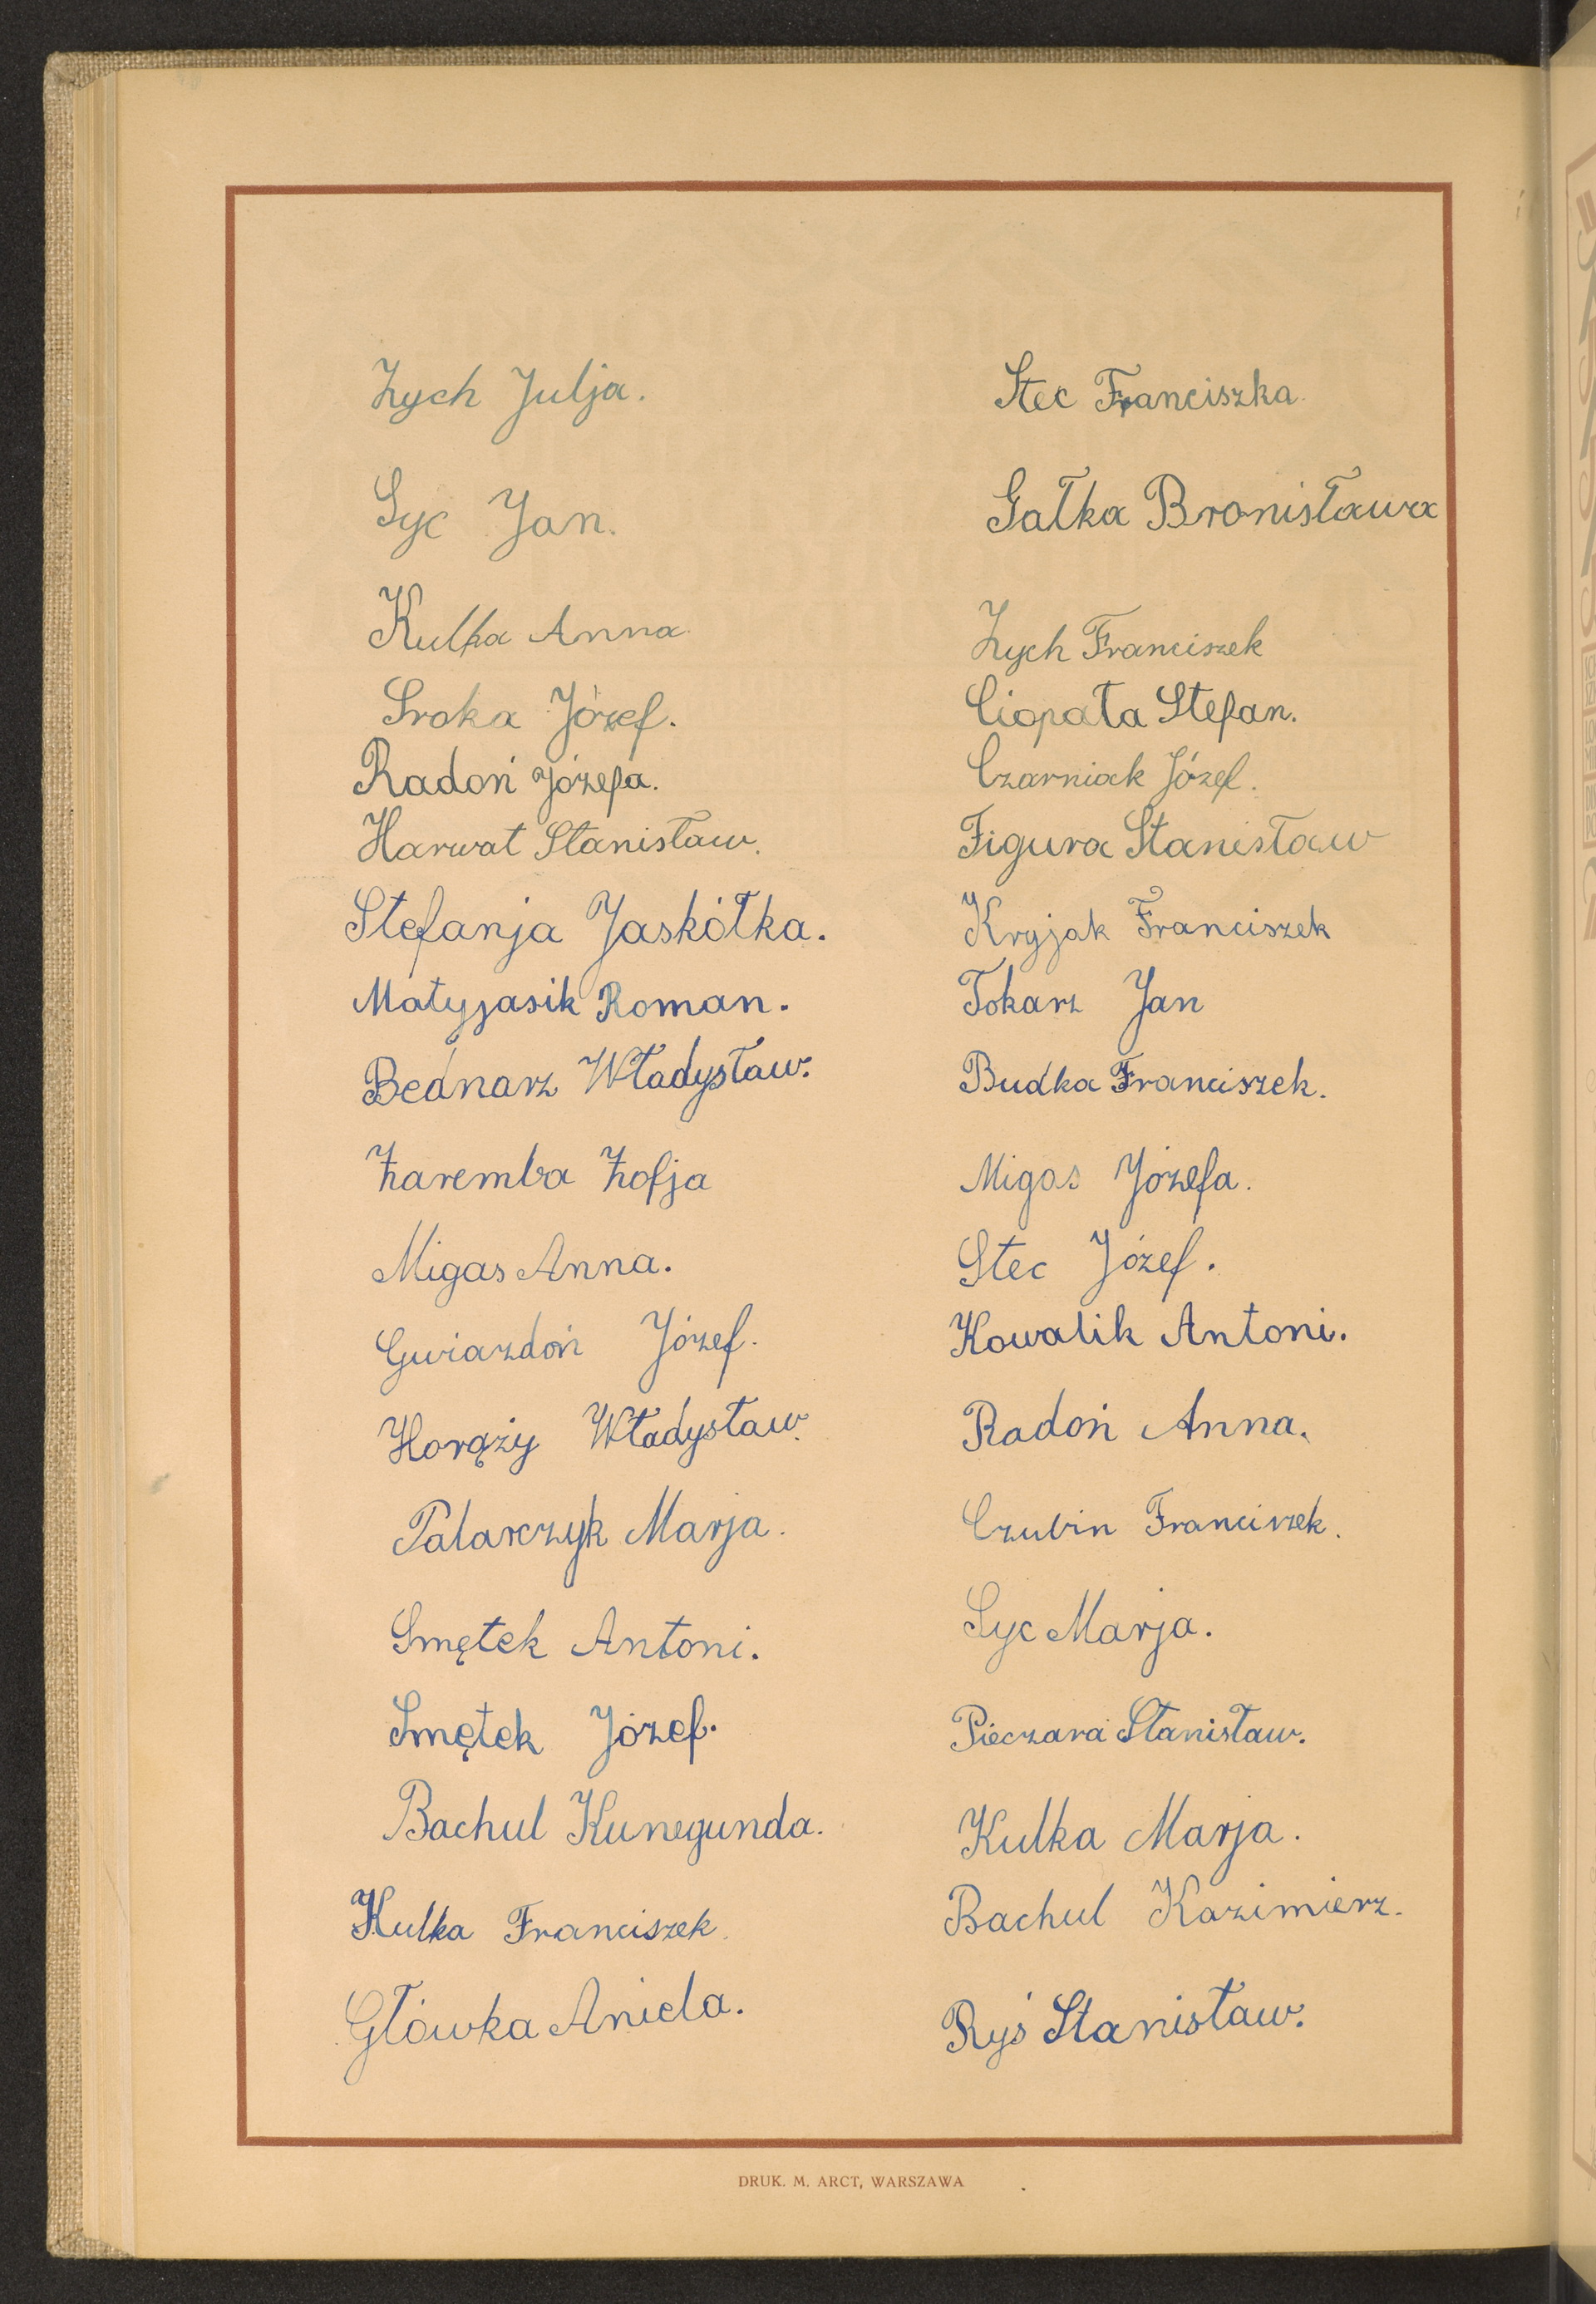 Zych Julja.
Syc Jan.
Kulka Anna.
Sroka Józef.
Radoń Józefa.
Harwat Stanisław.
Stefanja Jaskółka.
Matyjasik Roman.
Bednarz Władysław.
Zaremba Zofja
Migas Anna.
Gwiazdoń Józef.
Horąży Władysław.
Palarczyk Marja.
Smętek Antoni.
Smętek Józef.
Bachul Kunegunda.
Kulka Franciszek.
Główka Aniela.
Stec Franciszka.
Gałka Bronisława
Zych Franciszek
Ciopała Stefan.
Czarniak Józef.
Figura Stanisław
Kryjak Franciszek
Tokarz Jan
Budka Franciszek.
Migas Józefa.
Stec Józef.
Kowalik Antoni.
Radoń Anna.
Czubin Franciszek.
Syc Marja.
Pieczara Stanisław.
Kulka Marja.
Bachul Kazimierz.
Ryś Stanisław.
DRUK. M. ARCT, WARSZAWA